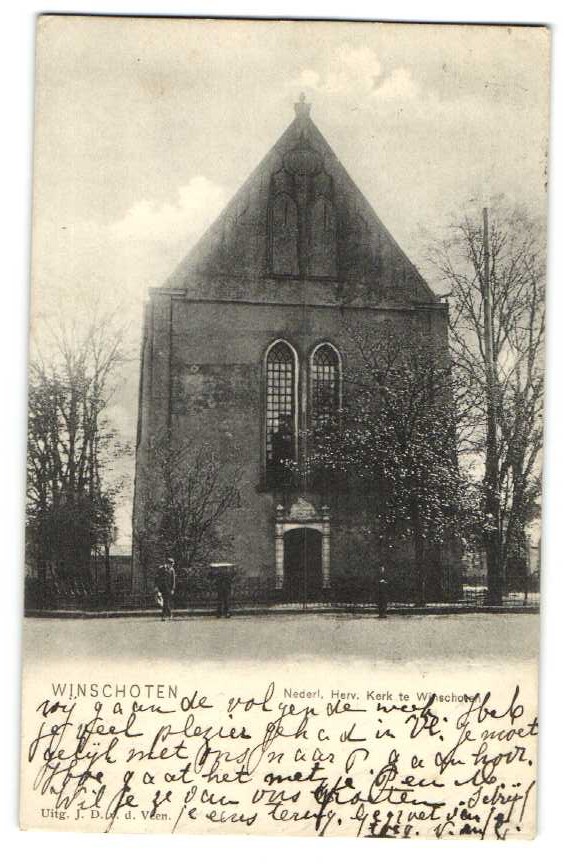 WINSCHOTEN
Nederl. Herv. Kerk te Winschoten
wij gaan de volgende week. Heb
je veel plezier gehad in Vl. Je moet
gelijk met ons naar P gaan hoor.
Hoe gaat het met je P en M
Wil je ze van ons groeten. Schrijf
je eens terug. Gegroet van je
toeg. v. 
Uitg. J. D. v. d. Veen.